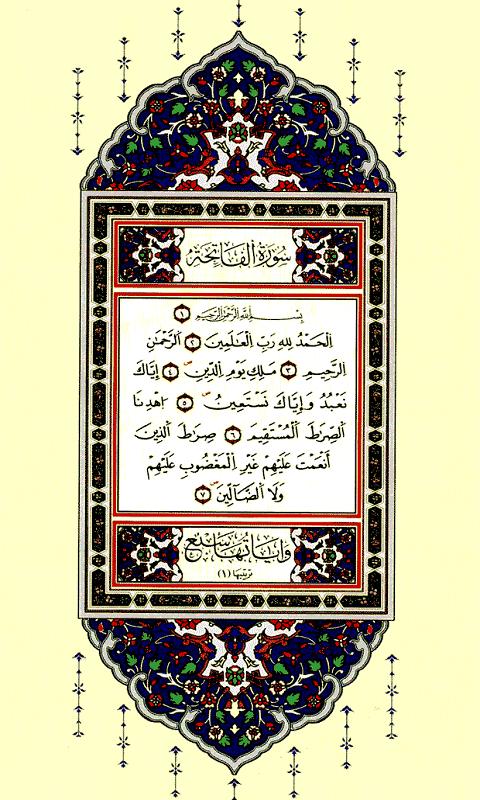 سُورَةُ ٱلْفَاتِحَةِ
بِسْمِ ٱللَّهِ ٱلرَّحْمَٰنِ ٱلرَّحِيمِ ١
ٱلْحَمْدُ لِلَّهِ رَبِّ ٱلْعَٰلَمِينَ ٢ ٱلرَّحْمَٰنِ
ٱلرَّحِيمِ ٣ مَٰلِكِ يَوْمِ ٱلدِّينِ ٤ إِيَّاكَ
نَعْبُدُ وَإِيَّاكَ نَسْتَعِينُ ٥ ٱهْدِنَا
ٱلصِّرَٰطَ ٱلْمُسْتَقِيمَ ٦ صِرَٰطَ ٱلَّذِينَ
أَنْعَمْتَ عَلَيْهِمْ غَيْرِ ٱلْمَغْضُوبِ عَلَيْهِمْ
وَلَا ٱلضَّآلِّينَ ٧
وَآيَاتُهَا سَبْعٌ
ترتيبها (١)